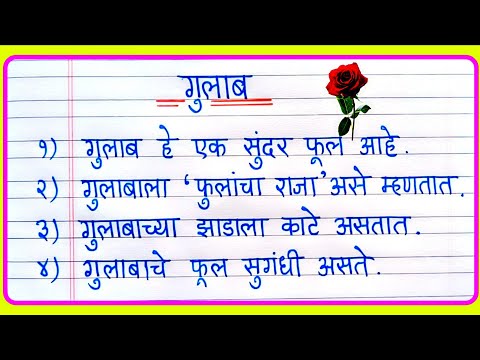 गुलाब
१) गुलाब हे एक सुंदर फूल आहे.
२) गुलाबाला ‘फुलांचा राजा’ असे म्हणतात.
३) गुलाबाच्या झाडाला काटे असतात.
४) गुलाबाचे फूल सुगंधी असते.